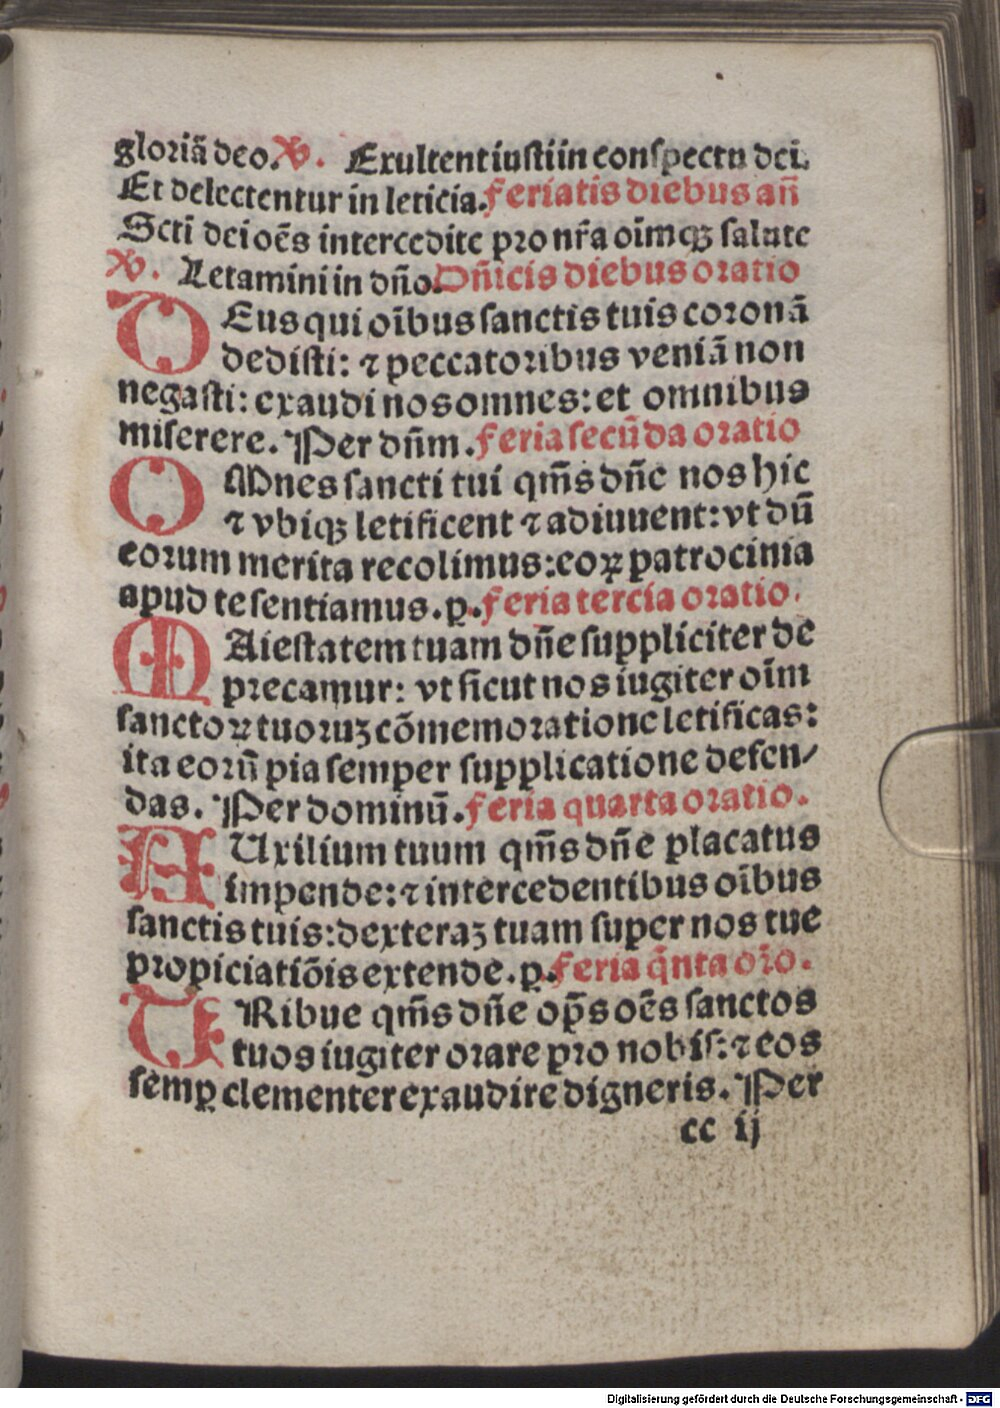 gloriā deo. ℣. Exultent iusti in conspectu dei.
Et delectentur in leticia. Feriatis diebus añ
Sctī dei oēs intercedite pro nr̄a oīmqꝫ salute
℣. Letamini in dn̄o. Dn̄icis diebus oratio
DEus qui oībus sanctis tuis coronā
dedisti: ⁊ peccatoribus veniā non
negasti: exaudi nos omnes: et omnibus
miserere. Per dn̄m. Feria secūda oratio
OMnes sancti tui qm̄s dn̄e nos hic
⁊ vbiqꝫ letificent ⁊ adiuuent: vt dū
eorum merita recolimus: eoꝝ patrocinia
apud te sentiamus. p. Feria tercia oratio.
MAiestatem tuam dn̄e suppliciter de
precamur: vt sicut nos iugiter oīm
sanctoꝝ tuoruꝫ cōmemoratione letificas:
ita eorū pia semper supplicatione defen/
das. Per dominū. Feria quarta oratio.
AUxilium tuum qm̄s dn̄e placatus
impende: ⁊ intercedentibus oībus
sanctis tuis: dexteraꝫ tuam super nos tue
propiciatiōis extende. p. Feria q̄nta oīo.
TRibue qm̄s dn̄e op̄s oēs sanctos
tuos iugiter orare pro nobis: ⁊ eos
semꝑ clementer exaudire digneris. Per
cc ij
Digitalisierung gefördert durch die Deutsche Forschungsgemeinschaft - DFG